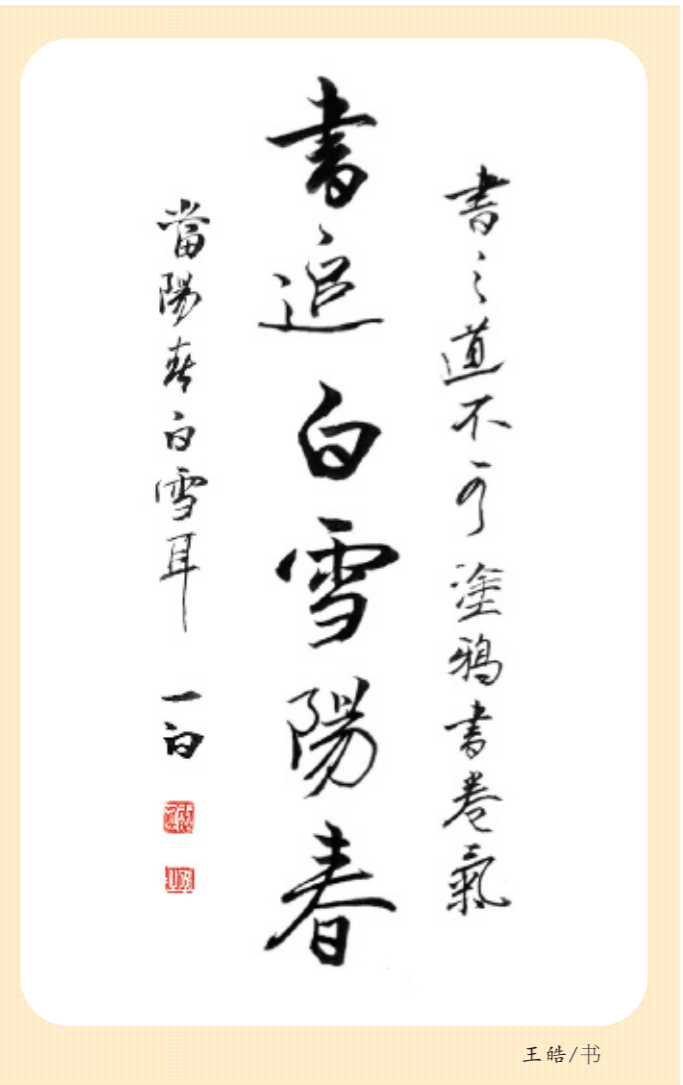 書之道不可塗鴉書卷氣
書追白雪陽春
當陽春白雪耳
一白
王皓/书